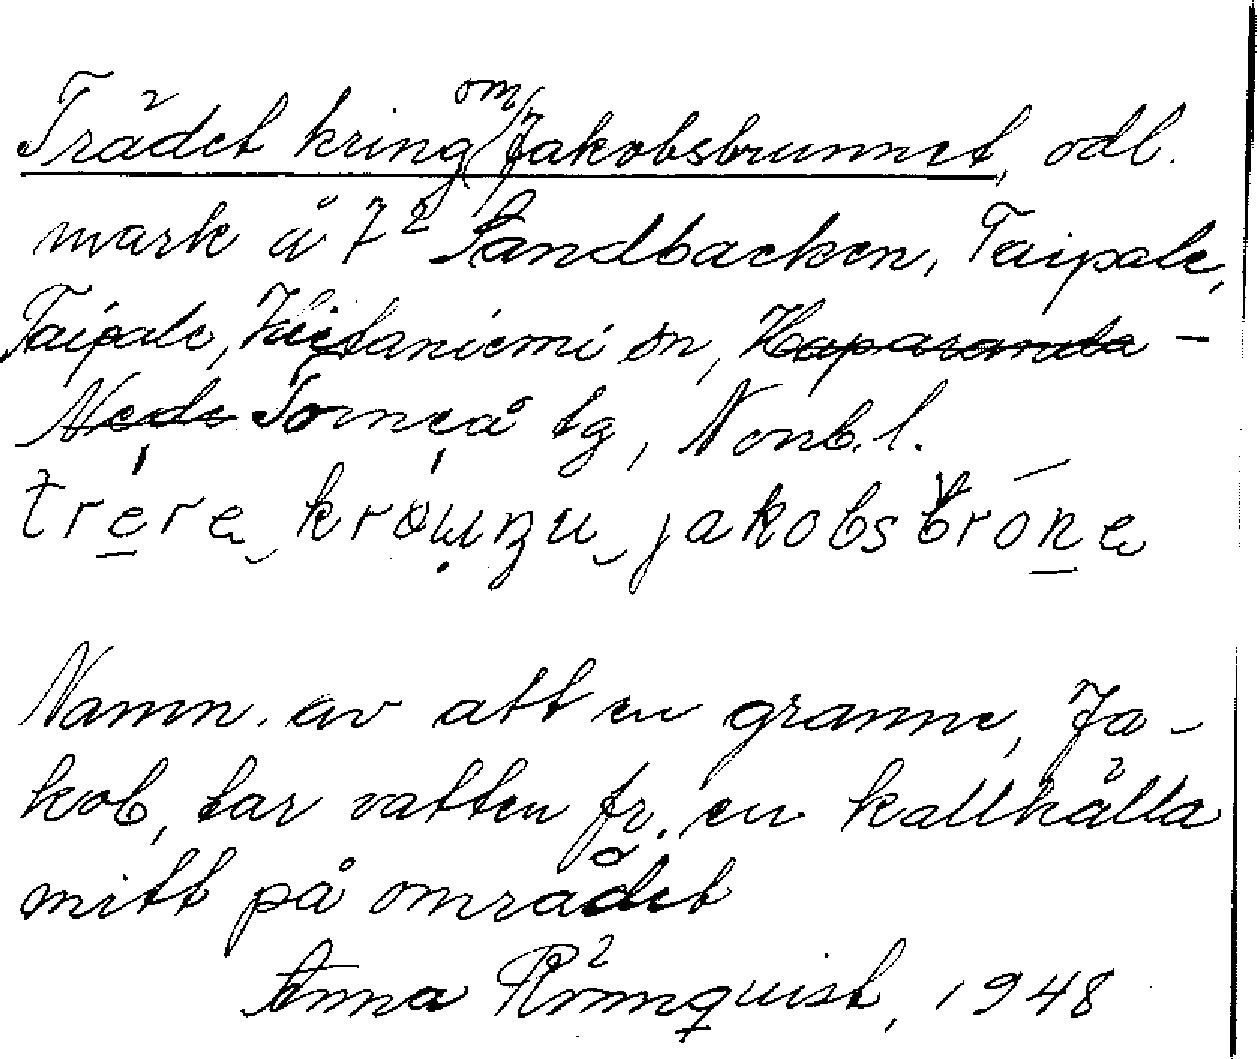 Trädet kring om/ Jakobsbrunnet, odl.
mark å 7² Sandbacken, Taipale,
Taipale, Hietaniemi sn, Haparanda -
Neds Torneå tg, Norrb. l.
Namn. av att en granne, Ja-
kob, tar vatten fr. en kallkälla
mitt på området
Anna Rönnquist, 1948